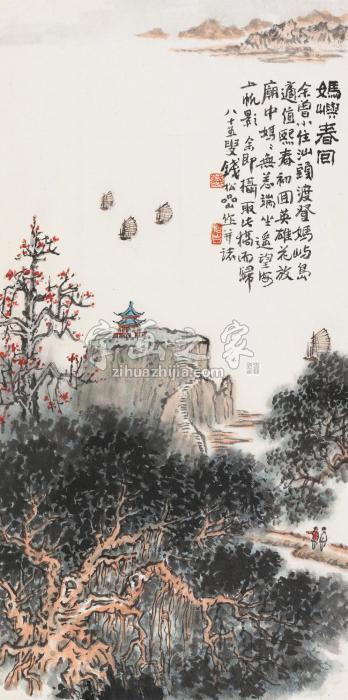 媽嶼春回
余曾小住汕頭渡登媽屿島
適值熙春初回英雄花放
廟中媽媽無恙端坐遥望海
上帆影余即攝取此稿而歸
八十五叟錢松嵒作并誌
字画之家
zihuazhijia.com